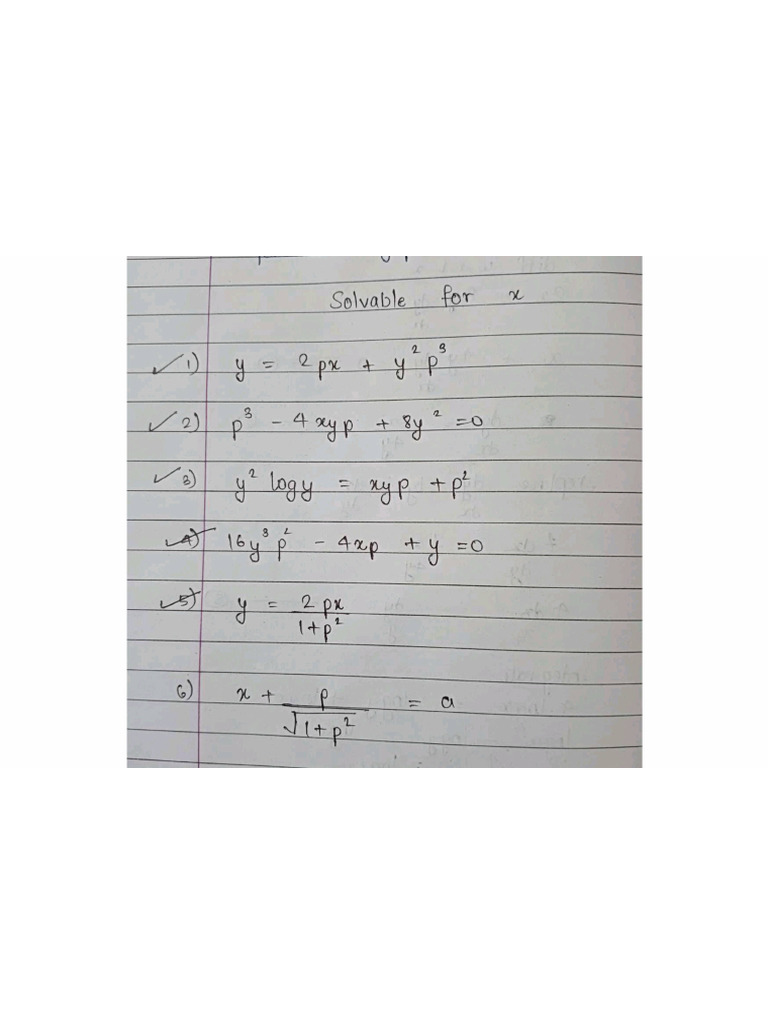 Solvable for x
1) y = 2px + y²p³
2) p³ - 4xyp + 8y² = 0
3) y² logy = xyp + p²
4) 16y³p² - 4xp + y = 0
5) y = 2px / 1+p²
6) x + p / √1+p² = a